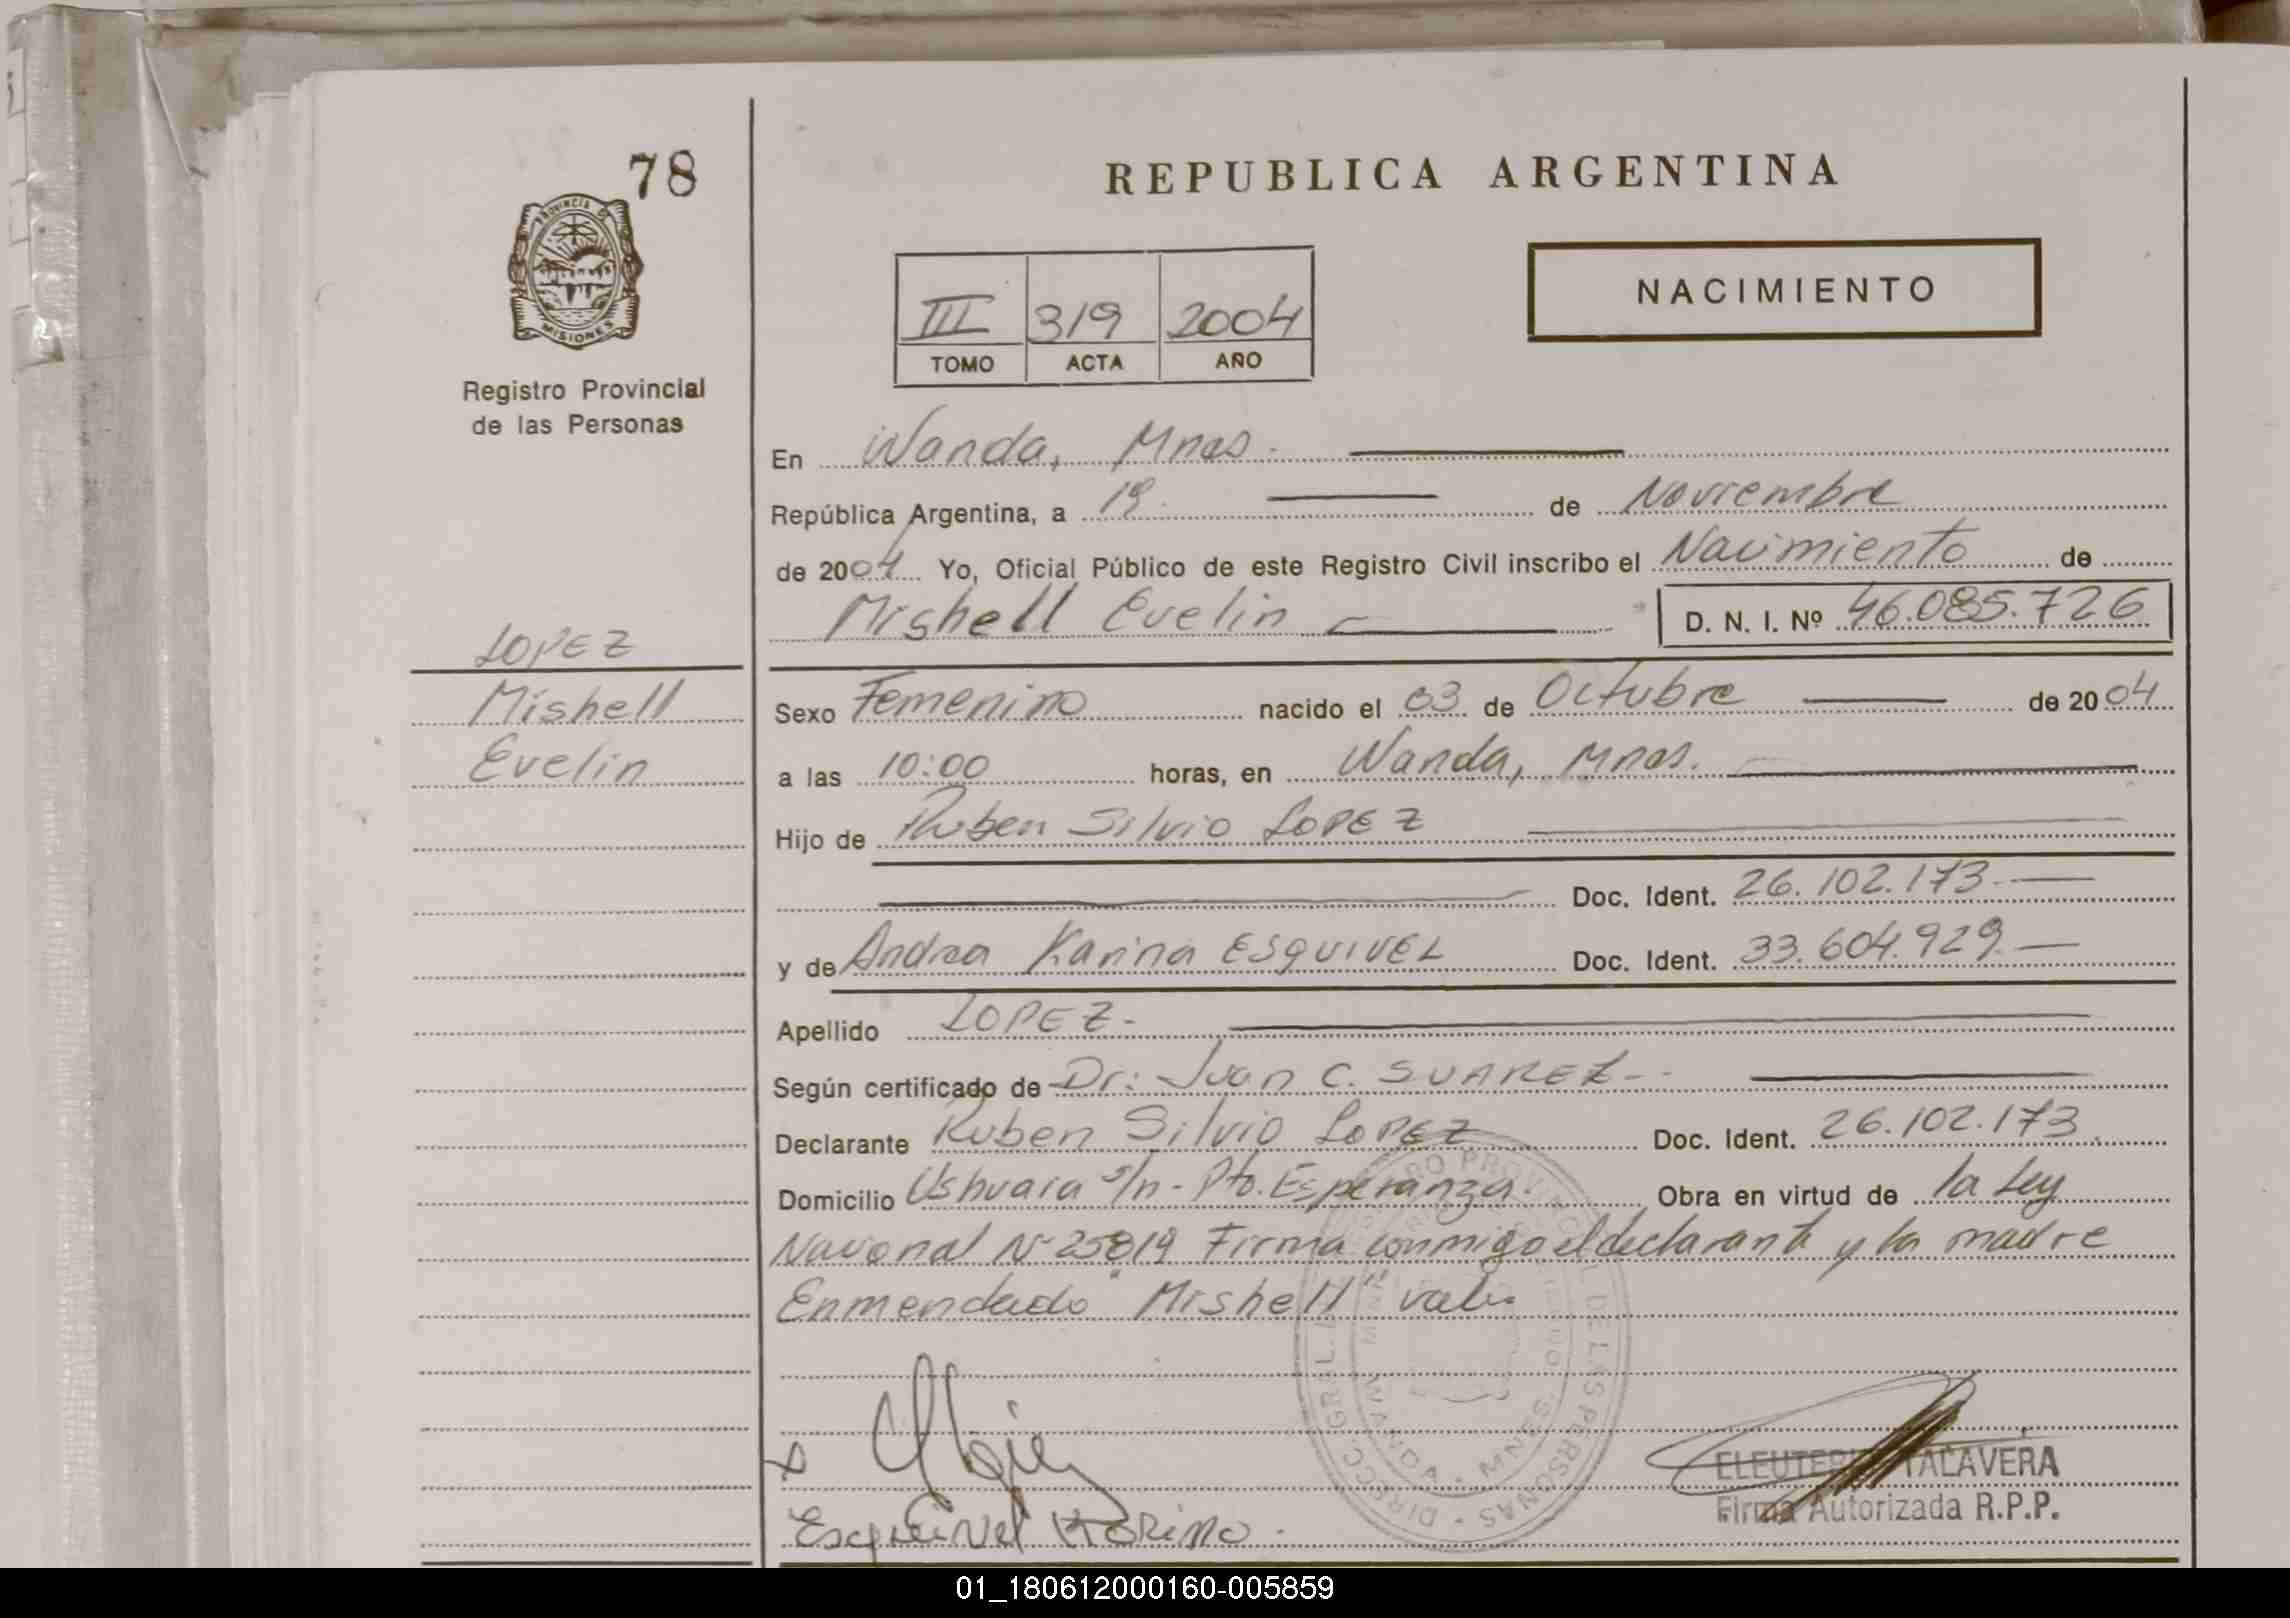 78
REPUBLICA ARGENTINA
PROVINCIA DE
MISIONES
Registro Provincial
de las Personas
NACIMIENTO
III 319 2004
TOMO ACTA AÑO
En Wanda, Mnes.
República Argentina, a 19 de Noviembre
de 2004 Yo, Oficial Público de este Registro Civil inscribo el Nacimiento de
Mishell Evelin D. N. I. Nº 46.085.726
LOPEZ
Mishell
Evelin
Sexo Femenino nacido el 03 de Octubre de 2004
a las 10:00 horas, en Wanda, Mnes.
Hijo de Ruben Silvio LOPEZ
Doc. Ident. 26.102.173
y de Andrea Karina ESQUIVEL Doc. Ident. 33.604.929
Apellido LOPEZ
Según certificado de Dr: Juan C. SUAREZ
Declarante Ruben Silvio LOPEZ Doc. Ident. 26.102.173
Domicilio Ushuaia s/n - Pto. Esperanza. Obra en virtud de la Ley
Nacional Nº 25819 Firma conmigo el declarante y la madre
Enmendado "Mishell" vale
x
Esquivel Karina
WANDA - MNES.
DIRECC. GRAL. DEL REGISTRO PROVINCIAL DE LAS PERSONAS
TALAVERA
Firma Autorizada R.P.P.
01_180612000160-005859